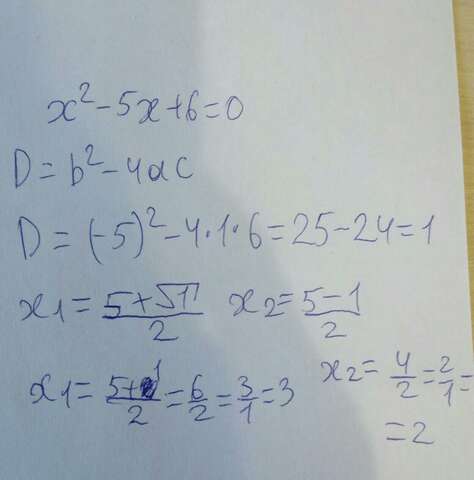 x² - 5x + 6 = 0
D = b² - 4ac
D = (-5)² - 4·1·6 = 25 - 24 = 1
x₁ = (5+√1)/2 x₂ = (5-1)/2
x₁ = (5+1)/2 = 6/2 = 3/1 = 3
x₂ = 4/2 = 2/1 =
= 2